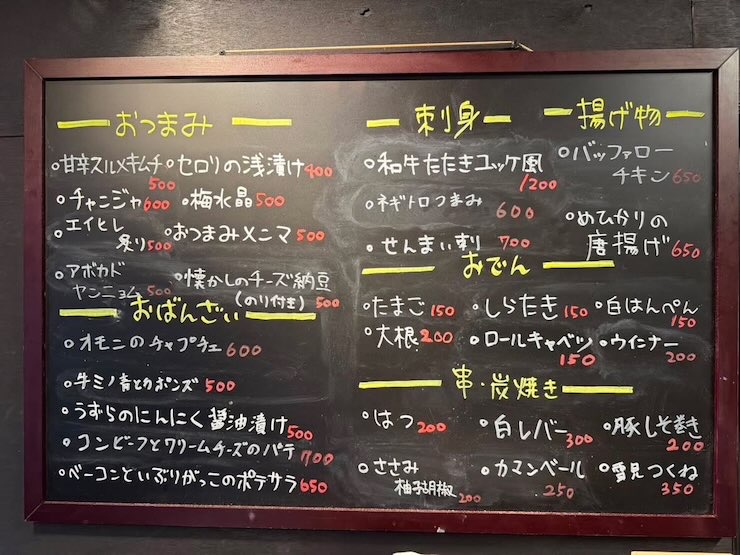 おつまみ
。甘辛スルメキムチ 500
。セロリの浅漬け 400
。チャンジャ 600
。梅水晶 500
。エイヒレ
炙り 500
。おつまみメンマ 500
。アボカド
ヤンニョム 500
。懐かしのチーズ納豆
(のり付き) 500
おばんざい
。オモニのチャプチェ 600
。牛ミノ青とうポンズ 500
。うずらのにんにく醤油漬け 500
。コンビーフとクリームチーズのパテ 700
。ベーコンといぶりがっこのポテサラ 650
刺身
。和牛たたきユッケ風
1200
。ネギトロつまみ 600
。せんまい刺 700
揚げ物
。バッファロー
チキン 650
。めひかりの
唐揚げ 650
おでん
。たまご 150
。しらたき 150
。白はんぺん
150
。大根 200
。ロールキャベツ
150
。ウインナー
200
串・炭焼き
。はつ 200
。白レバー 300
。豚しそ巻き
200
。ささみ
柚子胡椒 200
。カマンベール
250
。雪見つくね
350